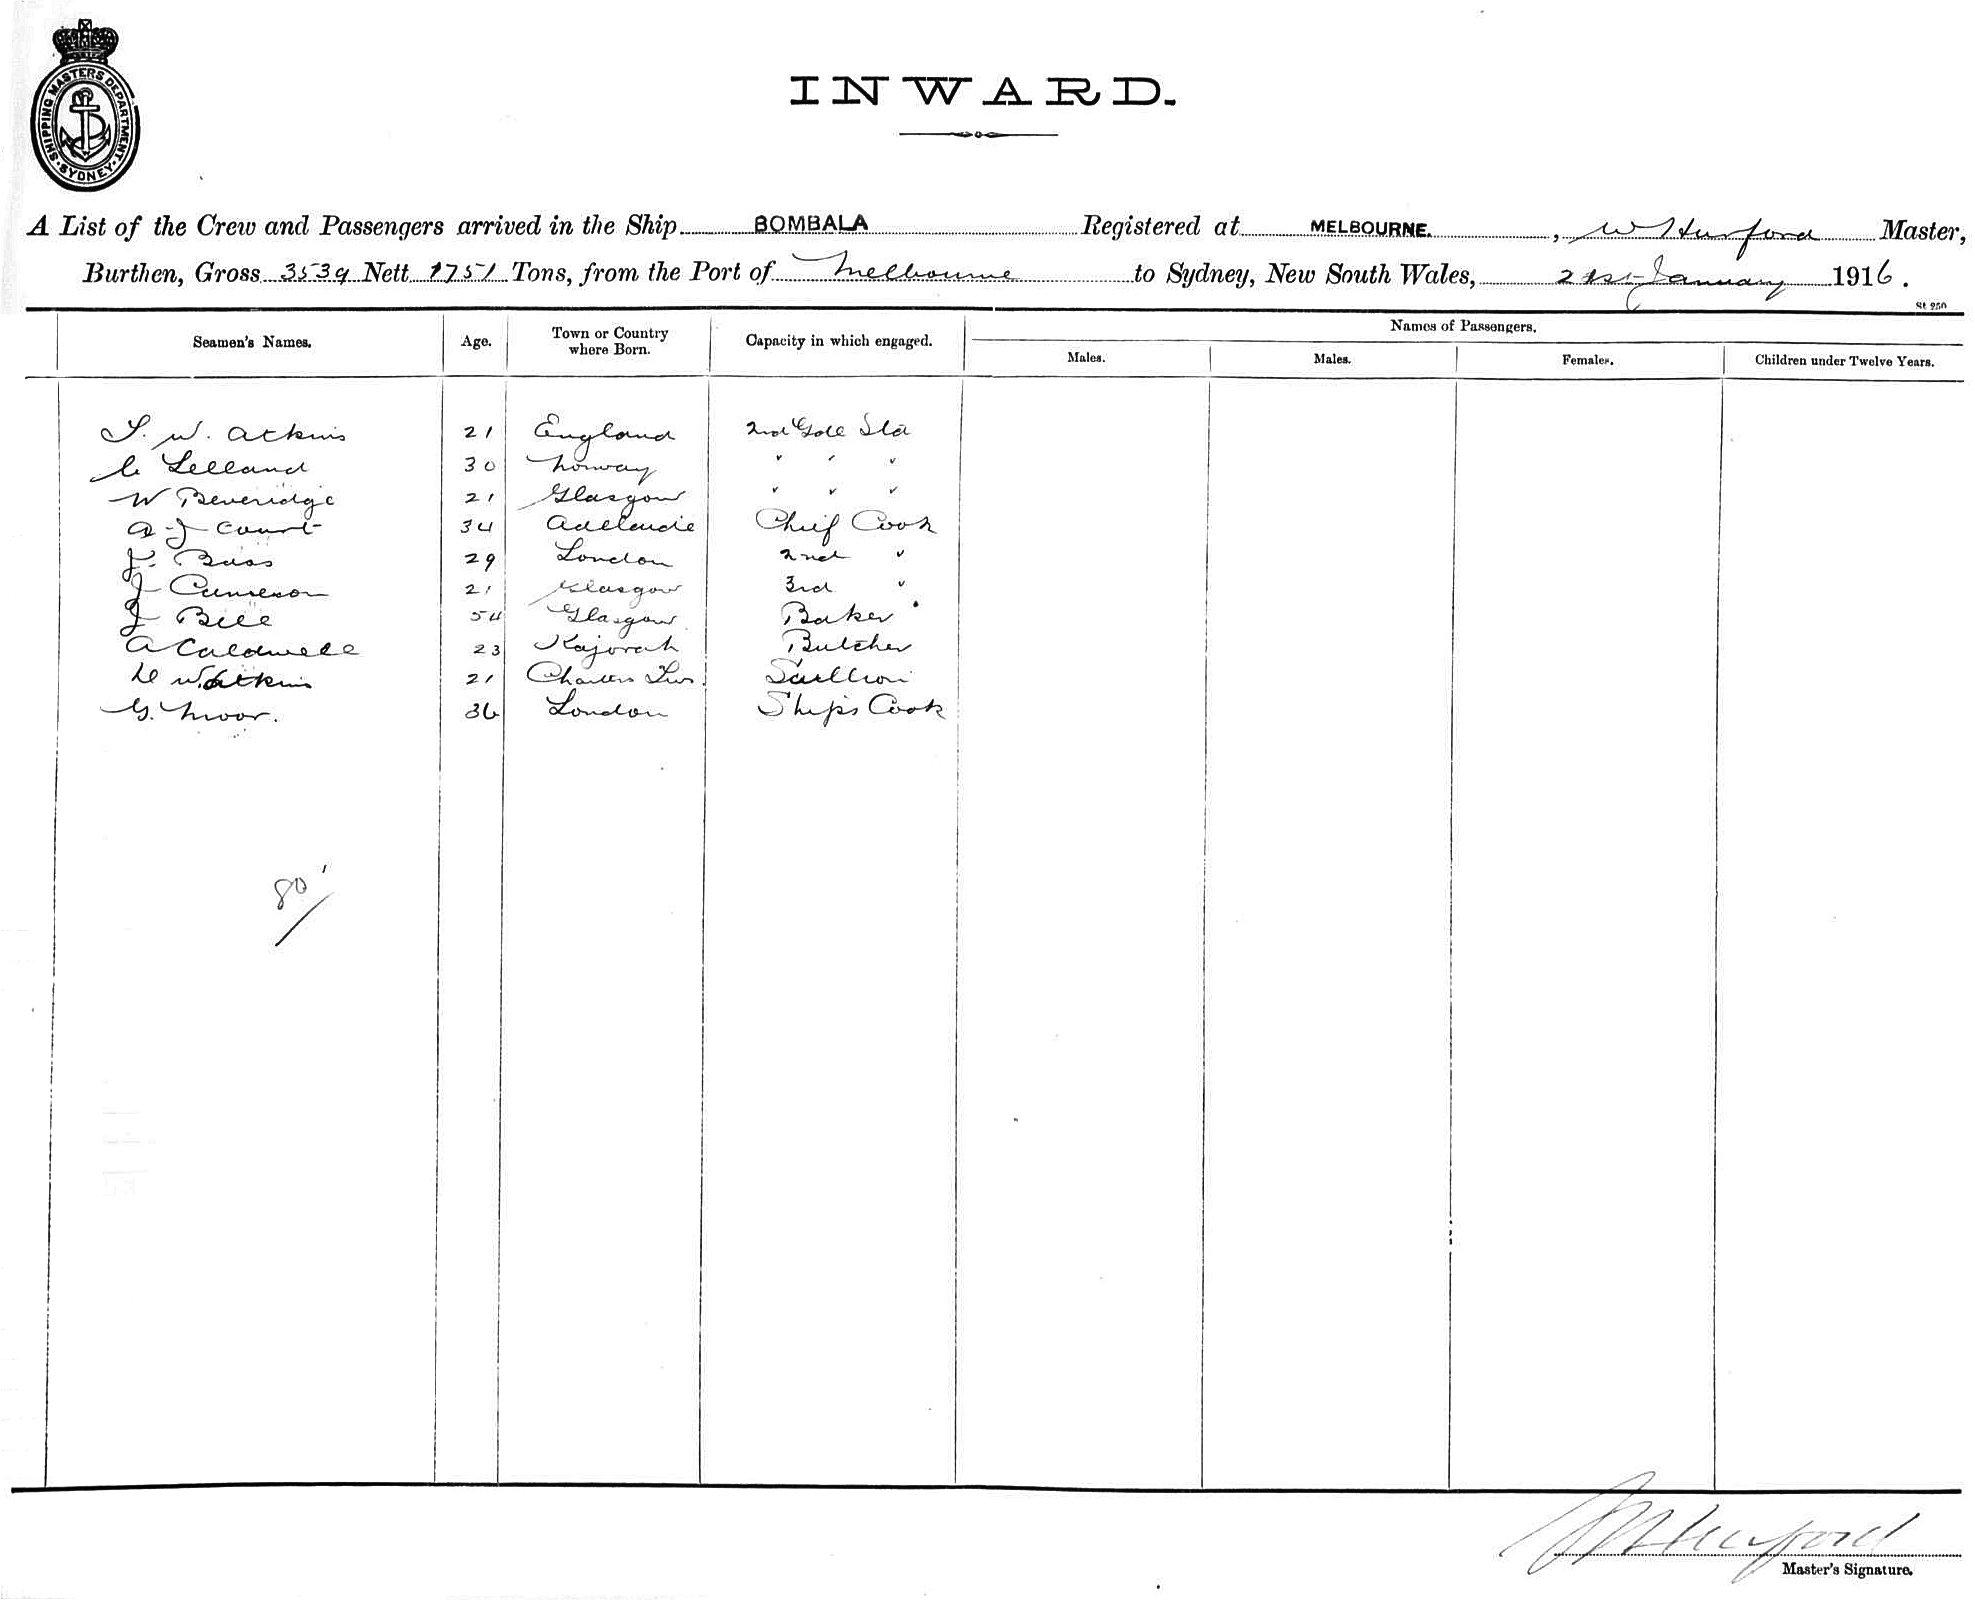 SHIPPING MASTERS DEPARTMENT · SYDNEY ·
INWARD.
A List of the Crew and Passengers arrived in the Ship BOMBALA Registered at MELBOURNE. , W Hurford Master,
Burthen, Gross 3539 Nett 1751 Tons, from the Port of Melbourne to Sydney, New South Wales, 21st January 1916.
St 250
Seamen's Names. Age. Town or Country where Born. Capacity in which engaged. Names of Passengers.
Males. Males. Females. Children under Twelve Years.
S. W. Atkins 21 England 2nd Std
C Lelland 30 Norway " " "
W Beveridge 21 Glasgow " " "
A J Court 34 Adelaide Chief Cook
J. Bass 29 London 2nd "
J Cameron 21 Glasgow 3rd "
J Bell 54 Glasgow Baker
A Caldwell 23 Butcher
W. Atkins 21 Charters Tws. Scullion
G. Moor. 36 London Ships Cook
80
W Hurford
Master's Signature.